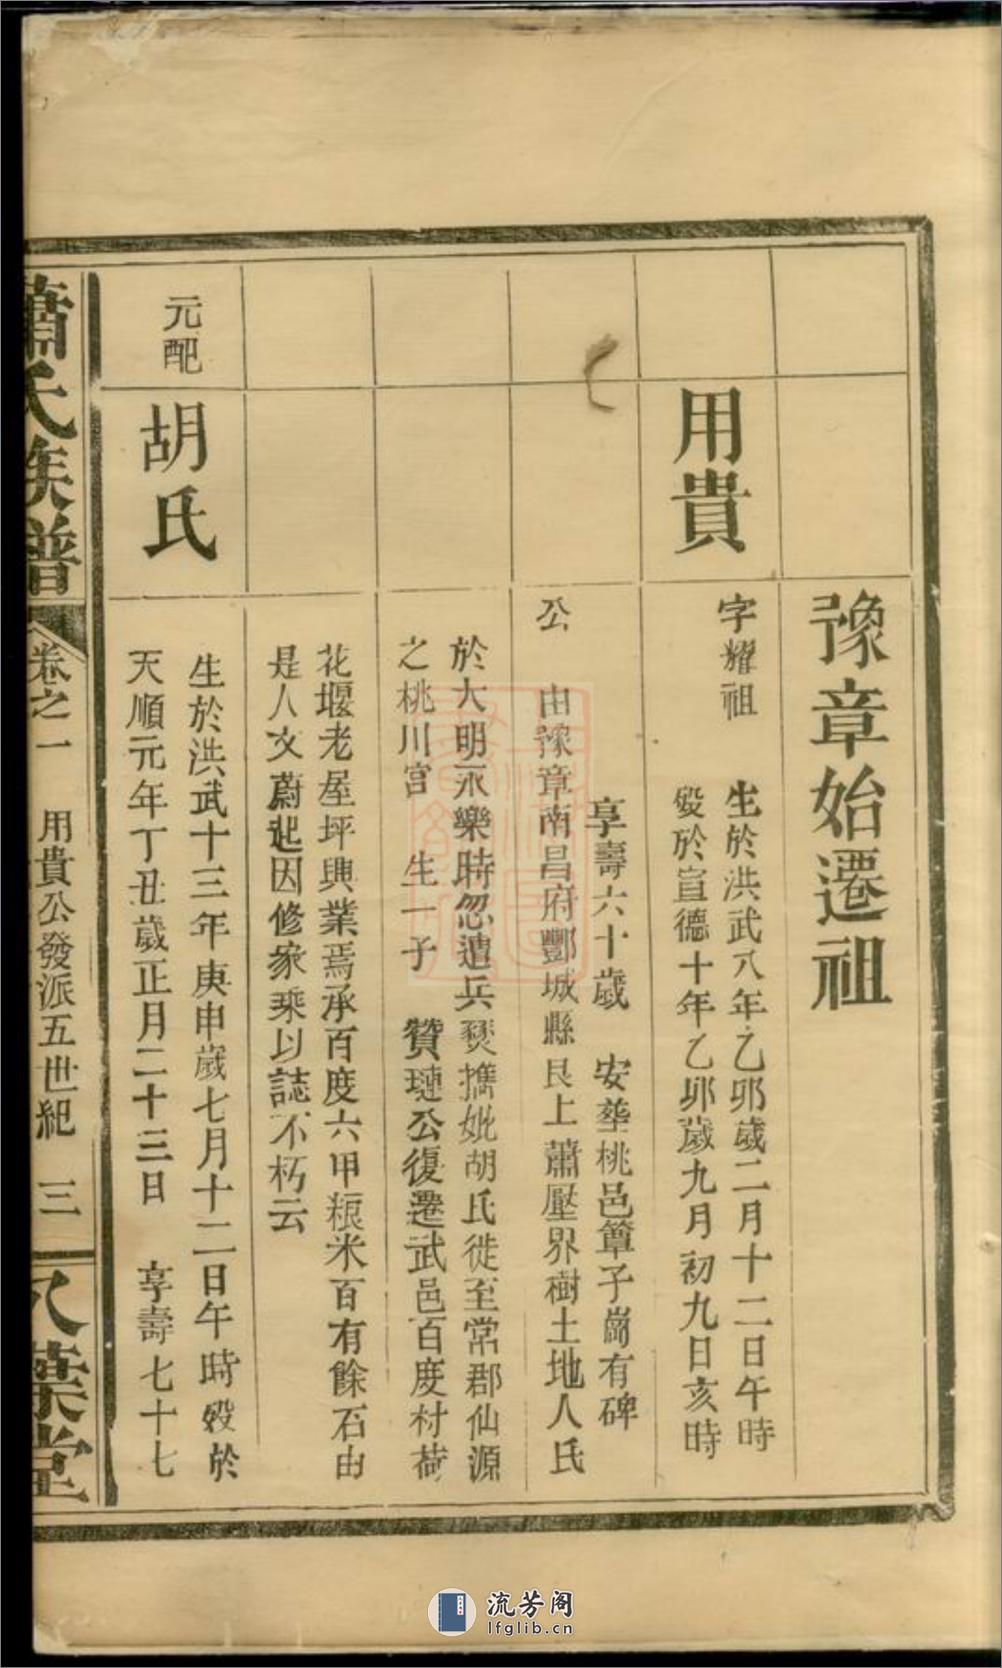 豫章始遷祖
用貴
字耀祖
生於洪武八年乙卯歲二月十二日午時
歿於宣德十年乙卯歲九月初九日亥時
享壽六十歲 安塟桃邑簟子崗有碑
公 由豫章南昌府酆城縣艮上蕭壓界樹土地人氏
於大明永樂時忽遭兵燹攜妣胡氏徙至常郡仙源
之桃川宮 生一子 贊璉公復遷武邑百度村荷
花堰老屋坪興業焉承百度六甲粮米百有餘石由
是人文蔚起因修家乘以誌不朽云
元配
胡氏
生於洪武十三年庚申歲七月十二日午時歿於
天順元年丁丑歲正月二十三日 享壽七十七
蕭氏族譜
卷之一 用貴公發派五世紀 三
八葉堂
流芳阁
lfglib.cn